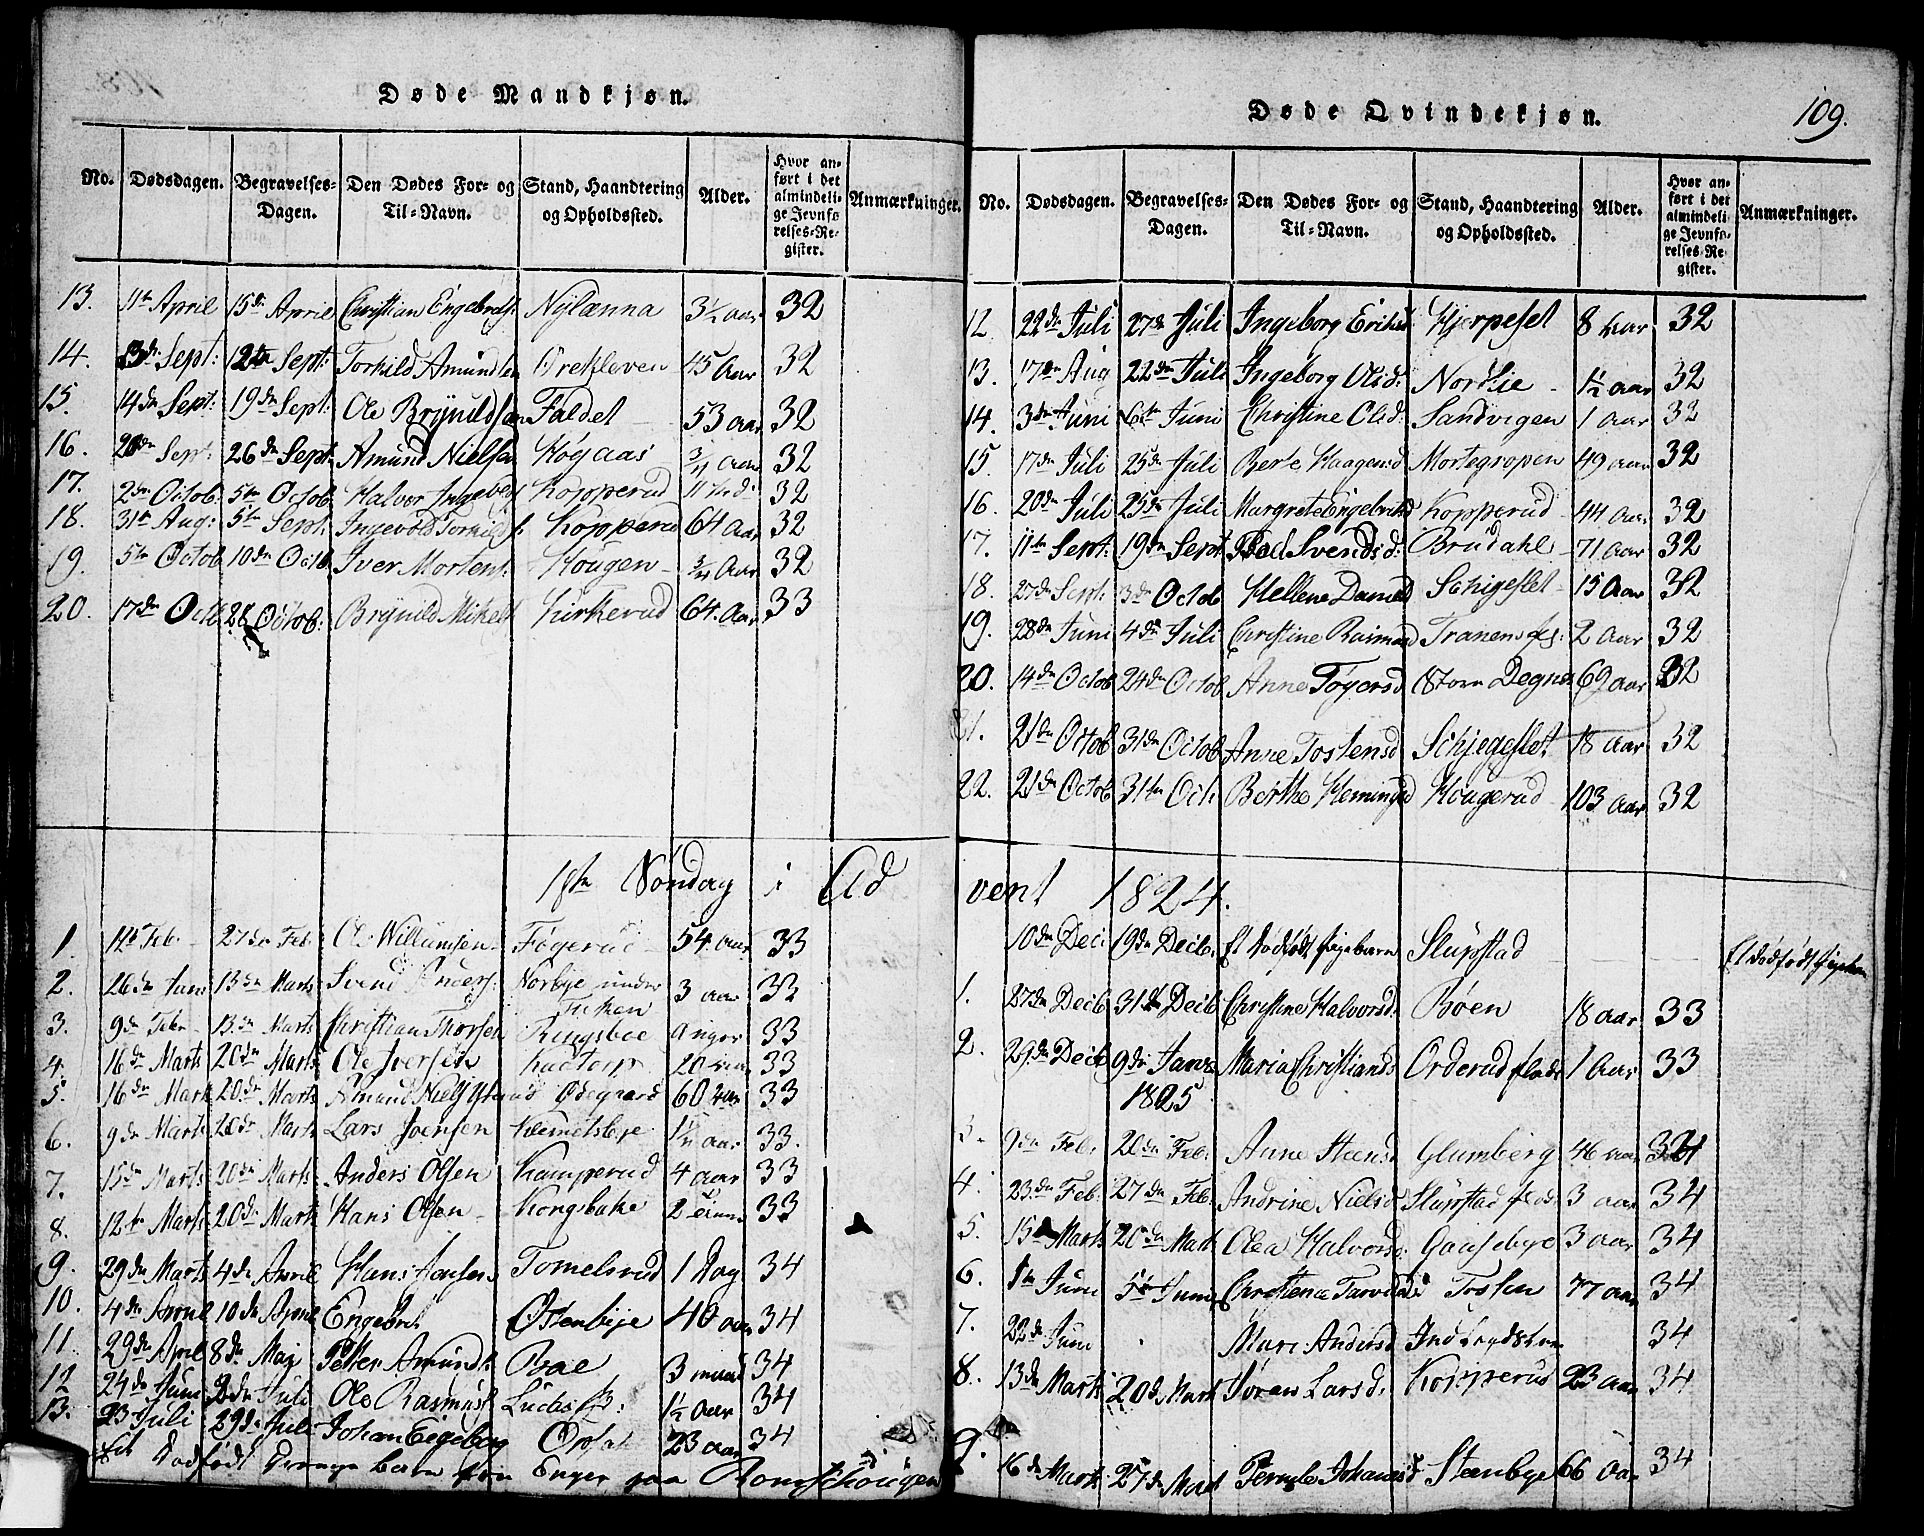 Døde Mandkjøn.
No. Dødsdagen. Begravelses-Dagen. Den Dødes For- og Til-Navn. Stand, Haandtering og Opholdssted. Alder. Hvor anført i det almindelige Jevnførelses-Register. Anmærkninger.
13. 11te April 15de April Christian Engebretss: Nylænna 3 1/2 Aar 32
14. 13de Sept: Sept: Torkild Amundsen Orekleven 45 Aar 32
15. 14de Sept: 19de Sept: Ole Brynildsen Faldet 53 Aar 32
16. Sept: 26de Sept: Amund Nielsen Høyaas Aar 32
17. 2de Octob: 5te Octob Halvor Kopperud 32
18. 31te Aug: 5te Sept: Ingevold Torkilds: Kopperud 64 Aar 32
19. 5te Octob 10de Octb Iver Mortens: Hougen Aar 32
20. 17de Octb 28 Octob: Brynild Mikels Kirkerud 64 Aar 33
1ste Søndag i Ad
1. Feb: 27de Feb: Ole Willumsen Føgerud 54 Aar 33
2. 26de Janu 13de Marts Svend Anders: Norbye under 3 aar 32
3. 9de Febr 13de Marts Christian Thorsen 33
4. 16de Marts 20de Marts Ole Iversen 20 33
5. 16de Marts 20de Marts Amund Ødegaard 60 Aar 33
6. 9de Marts 20de Marts Lars Joensen aar 33.
7. 15de Marts 20de Marts Anders Olsen Kamperud 4 aar 33
8. 12te Marts 20de Marts Hans Olsen Kongsbake 2 33
9. 29de Marts 4de April Hans Jensen Tomelsrud 1 Dag 34
10. 4de April 10de April Engebret Østenbye 40 aar 34
11. 29de April 8de Maj Petter Amunds: Rae 3 34
12. 24de Juni 2de Juli Ole Rasmus: 1 1/2 Aar 34
13. 23 Juli 29de Juli Johan 23 aar 34
Et Dødfødt Drenge barn fra Enger paa
Døde Qvindekjøn.
109.
No. Dødsdagen. Begravelses-Dagen. Den Dødes For- og Til-Navn. Stand, Haandtering og Opholdssted. Alder. Hvor anført i det almindelige Jevnførelses-Register. Anmærkninger.
12 22de Juli 27de Juli Ingeborg Eriksd: Hjerpeset 8 Aar 32
13. 17de Aug 22de Juli Ingeborg Olsd: Nordlie 1 1/2 aar 32
14. 3de Juni 6te Juni Christine Olsd: Sandvigen 1 aar 32
15. 17de Juli 25de Juli Berte Haagensd Mortegropen 49 aar 32
16. 20de Juli 25de Juli Margrete Engebretsd Kopperud 44 Aar 32
17. 11te Sept: 19de Sept Svendsd: Brudahl 71 aar 32
18. 27de Sept: 3de Octob Hellene Schigeslet 15 Aar 32
19. 28de Juni 4de Juli Christine Rasmusd 2 Aar 32
20. 14de Octob 24de Octob Anne 69 aar 32
21. 21de Octob 31de Octob Anne Tostensd Schjegeslet 18 aar 32
22. 21de Octob 31te Octb Berthe Hemingsd Hougerud 103 aar 32
vent 1824.
10de Dec: 19de Decb. Et Dødfødt Pigebarn Slupstad Et Dødfødt Pigebarn
1. 27de Decb 31te Decb Christine Halvorsd: Bøen 18 aar 33
2. 29de Decb 9de Janu 1825 Maria Christiansd Orderud 1 Aar 33
3. 9de Feb: 20de Feb: Anne Steensd Glumberg 46 aar 34
4. 23de Feb: 27de Feb: Andrine Nielsd Slupstad 3 aar 34
5. 15 Marts 20de Mart Olea Halvorsd: 3 aar 34
6. 1te Juni 5te Juni 77 aar 34
7. 22de Juni Mari Andersd 34
8. 13de Marts 20de Mart Søren Larsd: Kopperud 23 aar 34
9. 16de Marts 27de Mart Pernele Johannesd Steenbye 66 Aar 34